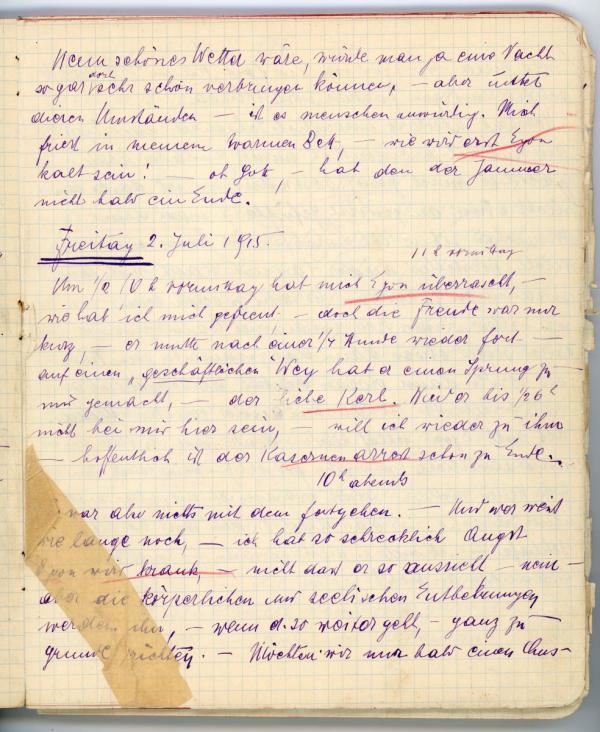 Wenn schönes Wetter wäre, würde man ja eine Nacht
so gar doch sehr schön verbringen können, – aber unter
diesen Umständen – ist es menschenunwürdig. Mich
friert in meinem warmen Bett, – wie wird erst Egon
kalt sein! – oh Gott, – hat denn der Jammer
nicht bald ein Ende.
Freitag 2. Juli 1915.
11 h vormittag
Um 1/2 10 h vormittag hat mich Egon überrascht, –
wie hab' ich mich gefreut – doch die Freude war nur
kurz, – er mußte nach einer 1/4 Stunde wieder fort –
auf einen „geschäftlichen" Weg hat er einen Sprung zu
mir gemacht, – der liebe Kerl. Wird er bis 1/2 6 h
nicht bei mir hier sein, – will ich wieder zu ihm
– hoffentlich ist der Kasernenarrest schon zu Ende. –
10 h abends
war also nichts mit dem fortgehen. – Und wer weiß
wie lange noch, – ich hab so schrecklich Angst
Egon wird krank, – nicht daß er so aussieht – nein –
aber die körperlichen und seelischen Entbehrungen
werden ihn, – wenn d. so weiter geht, – ganz zu
grunde richten. – Möchten wir nur bald einen Aus-